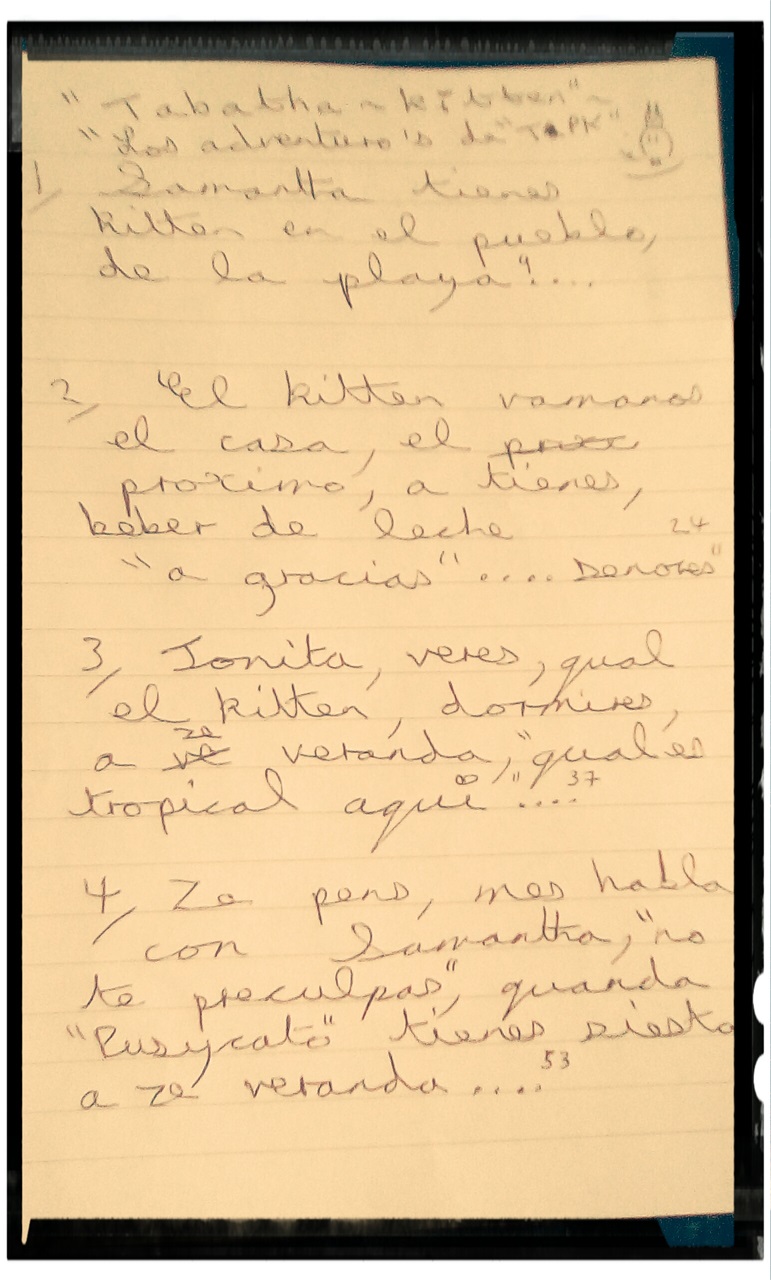 " Tabatha ~ kitten" ~
"Los adventuro's de "TAPK"
1, Samantha tienes
kitten en el pueblo,
de la playa"!....
2, "El kitten vamanos
el casa, el
proximo, a tienes,
beber de leche 24
"a gracias" .... senores"
3, Jonita, veres, qual
el kitten, dormires,
a ze veranda, "qual es
tropical aqui" .... 37
4, Ze pens, mes habla
con Samantha, "no
te preculpas", quanda
"Pusycato" tienes siesta
a ze veranda .... 53